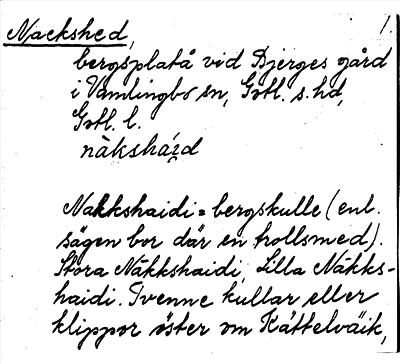 Nackshed, 1.
bergsplatå vid Bjerges gård
i Vamlingbo sn, Gotl. s. hd,
Gotl. l.
Nakkshaidi = bergskulle (enl.
sägen bor där en trollsmed).
Stora Näkkshaidi, Lilla Näkks-
haidi. Tvenne kullar eller
klippor öster om Kättelväik,